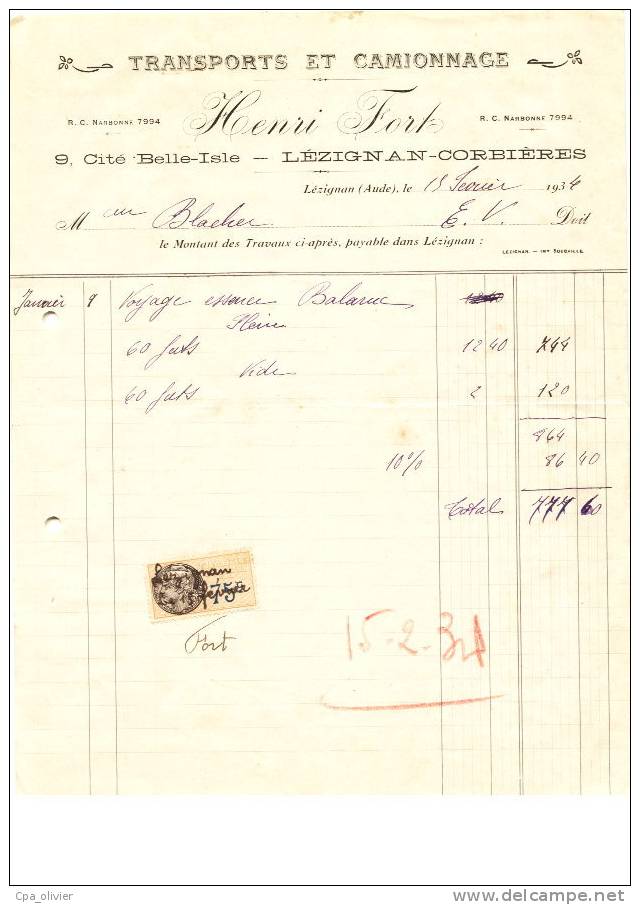 TRANSPORTS ET CAMIONNAGE
Henri Fort
R. C. NARBONNE 7994
R. C. NARBONNE 7994
9, Cité Belle-Isle — LÉZIGNAN-CORBIÈRES
Lézignan (Aude), le 15 Février 1934
M Blacher E. V. Doit
le Montant des Travaux ci-après, payable dans Lézignan :
LÉZIGNAN. — IMP. SOUBAILLE.
Janvier 9 Voyage essence Balaruc
Plein
60 futs 12 40 744
Vide
60 futs 2 120
864
10% 86 40
Total 777 60
Lezignan
75
Fort
15-2-34
Cpa_olivier
www.delcampe.net